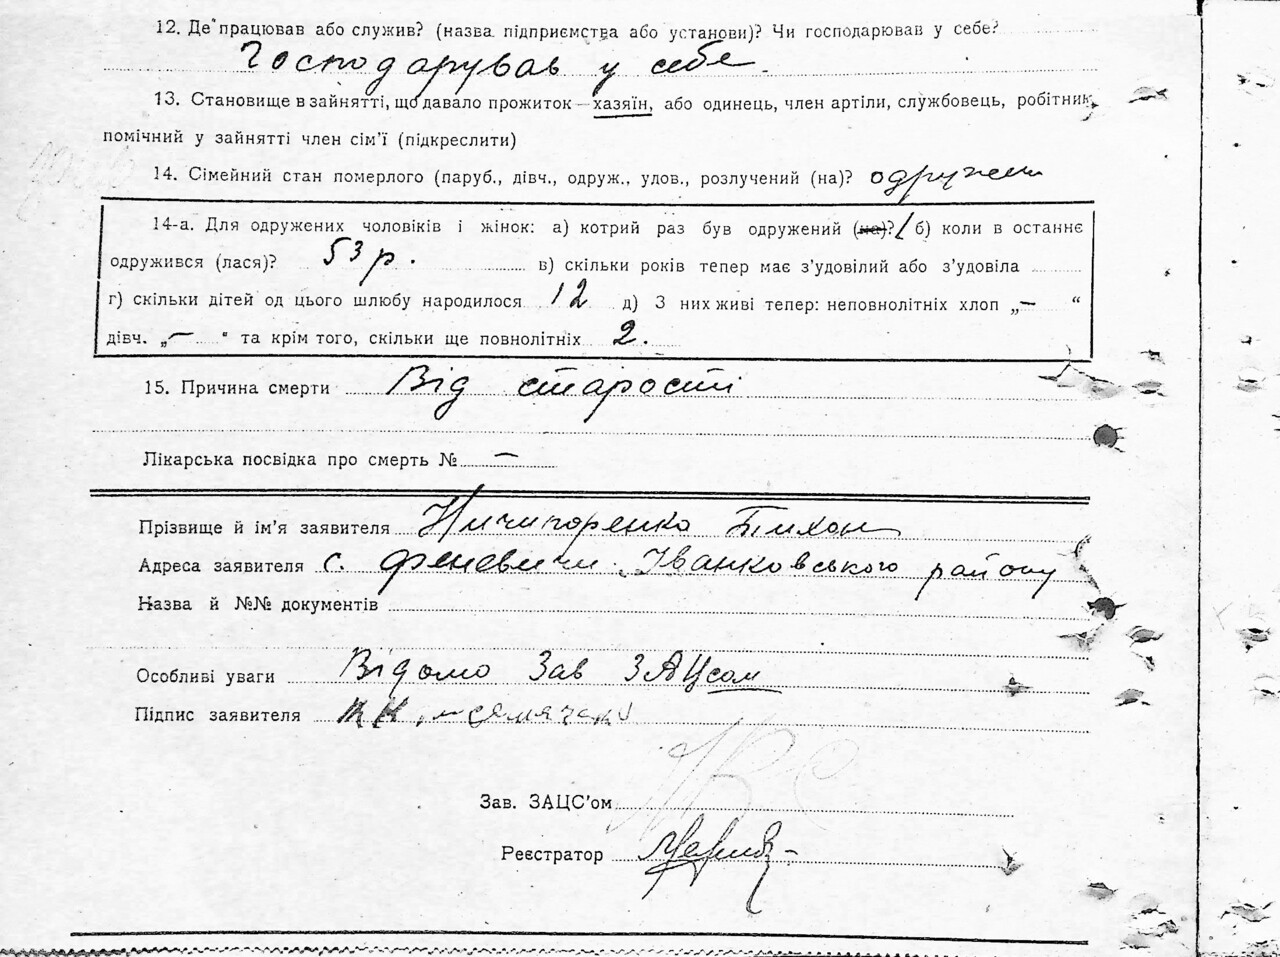 12. Де працював або служив? (назва підприємства або установи)? Чи господарював у себе?
Господарував у себе.
13. Становище в зайнятті, що давало прожиток — хазяїн, або одинець, член артіли, службовець, робітник,
помічний у зайнятті член сім’ї (підкреслити)
14. Сімейний стан померлого (паруб., дівч., одруж., удов., розлучений (на)? одружени
14-а. Для одружених чоловіків і жінок: а) котрий раз був одружений (на)? 1 б) коли в останнє
одружився (лася)? 53 р. в) скільки років тепер має з’удовілий або з’удовіла
г) скільки дітей од цього шлюбу народилося 12 д) З них живі тепер: неповнолітніх хлоп „—“
дівч. „—“ та крім того, скільки ще повнолітніх 2.
15. Причина смерти Від старости
Лікарська посвідка про смерть № —
Прізвище й ім’я заявителя Ничипоренко Тихон
Адреса заявителя с. Феневичи Іванковського району
Назва й №№ документів
Особливі уваги Відомо Зав ЗАЦсом
Підпис заявителя
Зав. ЗАЦС’ом
Реєстратор